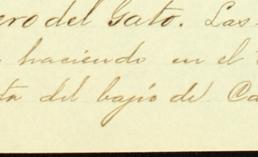 ero del Gato. Las
haciendo en el
ta del bajío de Ca